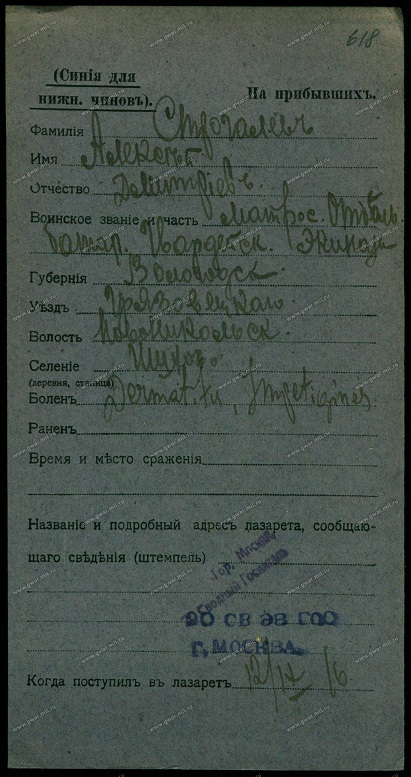 618
(Синія для
нижн. чиновъ).
На прибывшихъ.
Фамилія Строгалевъ
Имя Алексѣй
Отчество Дмитріевъ.
Воинское званіе и часть матрос. Отдѣль.
батар. Гвардейск. Экипажа
Губернія Вологодск.
Уѣздъ Грязовецкаго
Волость Новоникольск.
Селеніе
(деревня, станица)
Боленъ Dermatitis, Impetigines.
Раненъ
Время и мѣсто сраженія
Названіе и подробный адресъ лазарета, сообщаю-
щаго свѣдѣнія (штемпель)
Гор. Москва
Сводный
96 СВ ЭВ ГОС
Г. МОСКВА.
Когда поступилъ въ лазаретъ 12/IX 16
www.gwar.mil.ru